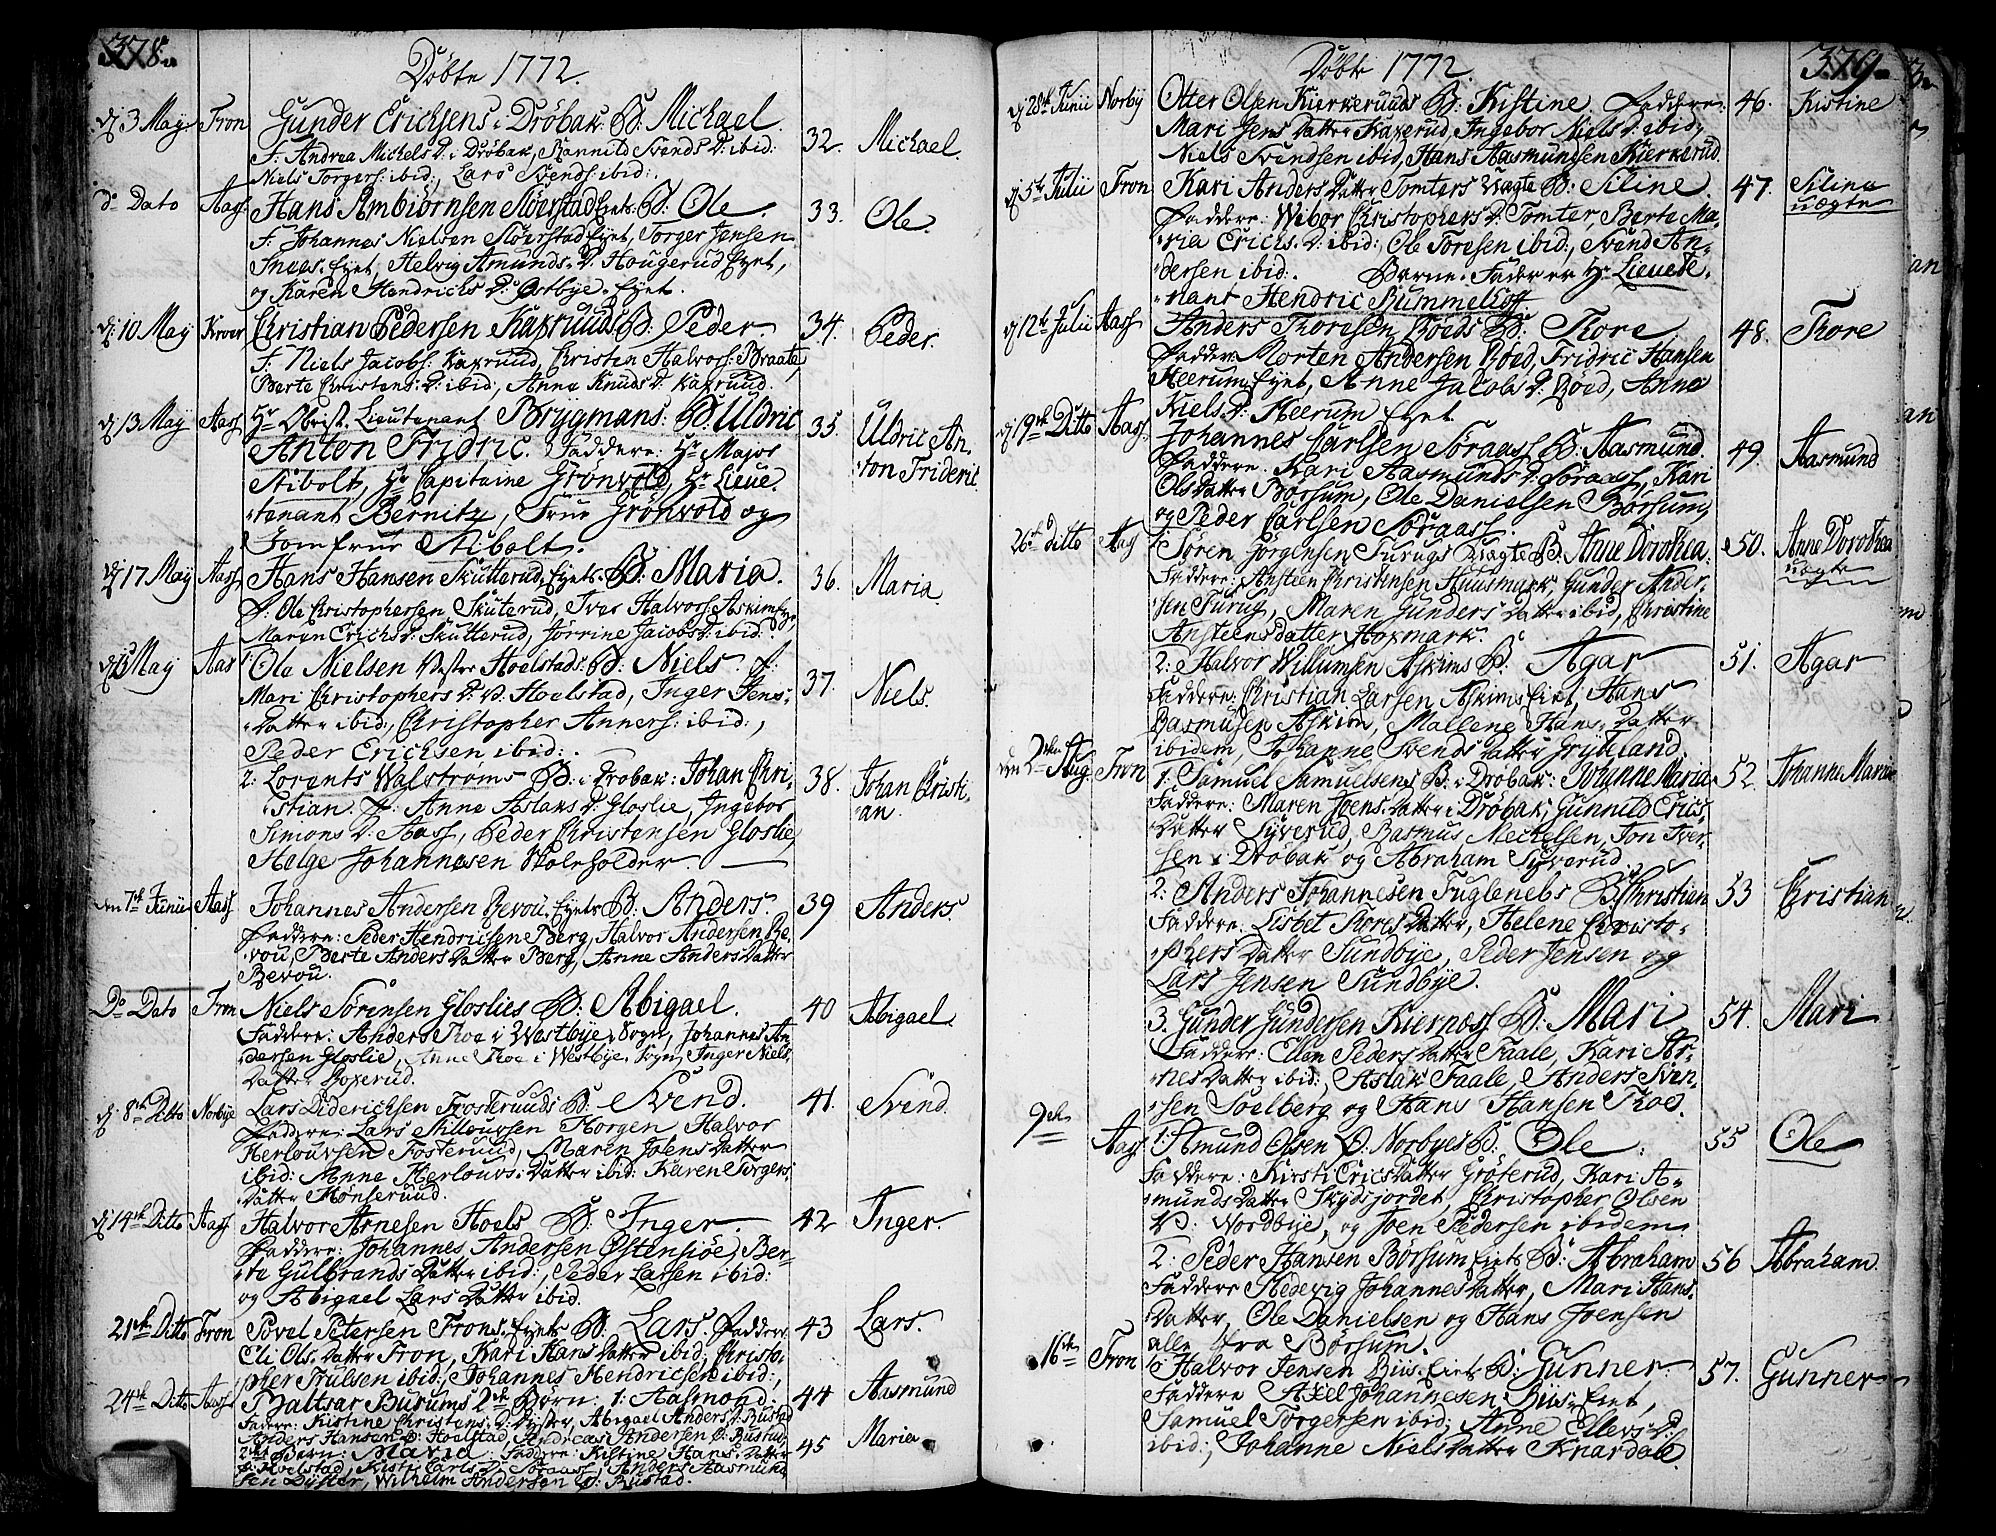 378.
Döbte 1772.
dj 3 May Fron Gunder Erichsens i Dröbak B: Michael 32. Michael.
F: Andrea Michels D: i Dröbak, Rannild Svends D: ibid:
Niels Torgers: ibid:, Lars Svends: ibid:,
do Dato Aas Hans Ambiörnsen Slöerstad Eyets B: Ole. 33. Ole.
F: Johannes Nielsen Slöerstad Eyet, Torger Jensen
Eyet, Helvig Amunds D: Hougerud Eyet,
og Karen Hendrichs D: Ostbye Eyet.
dj 10 May Kroer Christian Pedersen Kaxruuds B: Peder 34. Peder.
F: Niels Jacobs: Kaxruud, Christen Halvors: Braate,
Berte Christens: D: ibid:, Anne Knuds D: Kaxruud.
dj 13 May Aas Hr Obrist Lieutenant Brygmans: B: Uldric 35. Uldric An-
Anton Fridric. Faddere: Hr Major ton Frideric
Stibolt, Hr Capitaine Grönvold, Hr Lieue-
tenant Bernitz, Frue Grönvold og
Jomfrue Stibolt.
dj 17 May Aas Hans Hansen Skutterud Eyets B: Maria. 36. Maria.
F: Ole Christophersen Skuterud, Ivar Halvors: Askim Eye,
Maren Erichs D: Skutterud, Jörrine Jacobs D: ibid:
May Aas Ole Nielsen Vestre Hoelstads B: Niels F: 37. Niels.
Mari Christophers D: V: Hoelstad, Inger Jens-
Datter ibid:, Christopher Anners: ibid:,
Peder Erichsen ibid:.
2: Lorents Walströms B: i Drobak: Johan Chri- 38. Johan Christi-
stian. F: Anne Aslaks D: Gloslie, Ingebor an.
Simons D: Aass, Peder Christensen Gloslie,
Helge Johannesen Skoleholder.
den 7de Junii Aas Johannes Andersen Revou Eyets B: Anders. 39 Anders.
Faddere: Peder Hendrichsen Berg, Halvor Andersen Re-
vou, Berte Anders Datter Berg, Anne Anders Datter
Revou.
Do Dato Fron Niels Sörensen Gloslies B: Abigael. 40 Abigael.
Faddere: Anders Thoe i Westbye Sogn, Johannes An-
dersen Gloslie, Anne Thoe i Westbye Sogn, Inger Niels
Datter Boxerud.
dj 8de Ditto Norbye Lars Diderichsen Fosteruuds B: Svend. 41. Svend.
Faddere: Lars Horgen Halvor
Herlouvsen Fosteruud, Maren Joens Datter
ibid: Anne Herlouvs: Datter ibid: Karen Torgers
Datter Hönseruud.
dj 14de Ditto Aas Halvor Arnesen Hoels B: Inger. 42 Inger.
Faddere: Johannes Andersen Östensiöe, Ber-
te Gulbrands Datter ibid:, Peder Larsen ibid:
og Abigael Lars Datter ibid.
21de Ditto Fron Povel Petersen Frons Eyets B: Lars. Faddere 43 Lars.
Eli Ols Datter Fron, Kari Hans Datter ibid:, Christo-
pher Truelsen ibid:, Johannes Hendricksen ibid:,
24de Ditto Aas Baltsar Burums 2de Börn: 1: Aasmond. 44 Aasmund
Fadere: Kistine Christens: D: Dyster, Abigael Anders D: Bustad
Anders Hansen Hoelstad, Andreas Andersen Bustad
2det Barn: Maria. Faddere: Kistine Hans Datter 45 Maria
Hoelstad, Kisti Carls D: Soraas, Anders Aasmund-
sen Dyster, Wilhelm Andersen Bustad.
379.
Döbte 1772
dj 28de Junii Norby Otter Olsen Kierkeruuds B: Kistine Faddere: 46. Kistine
Mari Jens Datter Kaxerud, Ingebor Niels D: ibid,
Niels Svendsen ibid, Hans Aasmundsen Kierkerud.
dj 5te Julii Fron Kari Anders Datter Tomters Uagte B: Siline 47. Silina
Faddere: Wibor Christophers D: Tomter, Berte Ma- uægte
ria Erichs D: ibid: Ole Toresen ibid:, Svend An-
dersen ibid:. Barne-Fader er Hr Lieuete-
nant Hendric Bummelhoff
dj 12te Julii Aas Anders Thoresen Roeds B: Thore 48. Thore
Fadder: Morten Andersen Roed, Fridric Hansen
Heerum Eyet, Anne Jacobs D: Roed, Anna
Niels D: Heerum Eyet
dj 19de Ditto Aas Johannes Carlsen Soraas B: Aasmund. 49. Aasmund
Faddere: Kari Aasmunds D: Soraas, Kari
Ols Datter Börsum, Ole Danielsen Börsum,
og Peder Carlsen Soraas.
26de ditto Aas Sören Jörgensen Turugs Uagte B: Anne Dorothea. 50. Anne Dorothea
Faddere: Ansteen Christensen Huusmark, Gunder Ander- uægte
sen Turug, Maren Gunders Datter ibid, Christine
Ansteens datter Hoxmark.
2: Halvor Willumsen Askims B: Agar 51. Agar
Faddere: Christian Larsen Askims Eiet, Hans
Rasmusen Askim, Mallene Hans Datter
ibidem, Johanne Svends datter Gryteland.
den 2den Aug Fron 1. Samuel Samuelsens B: i Dröbak: Johanne Maria 52. Johanne Maria
Faddere: Maren Joens: Datter i Dröbak, Gunnild Erics
Datter Syverud, Rasmus Meckelsen, Jon Iver-
sen i Dröbak og Abraham Syverud.
2: Anders Johannesen Fuglenebs B: Christian 53 Christian
Faddere: Lisbet Thores Datter, Helene Christo-
phers Datter Sundbye, Peder Jensen og
Lars Jensen Sundbye.
3. Gunder Gundersen Kiernæss B: Mari 54. Mari
Faddere: Ellen Peders Datter Faale, Kari Ar-
nes Datter ibid:, Aslak Faale, Anders Sven-
sen Soelberg og Hans Hansen Thoe.
9de Aas 1: Amund Olsen Ö: Norbyes B: Ole. 55 Ole
Faddere: Kirsti Erics Datter Gröterud, Kari A-
munds Datter Skydsjordet, Christopher Olsen
V: Nordbye, og Joen Pedersen ibidem
2: Peder Hansen Börsum Eiets B: Abraham 56 Abraham.
Faddere Hedevig Johannes Datter, Mari Hans
Datter, Ole Danielsen og Hans Joensen
alle fra Börsum.
16de Fron Halvor Jensen Biis Eiet B: Gunner 57. Gunner
Faddere Axel Johannesen Biis Eiet,
Samuel Torgersen ibid:, Anne Ellevs D:
ibid:, Johanne Niels Datter Knardale